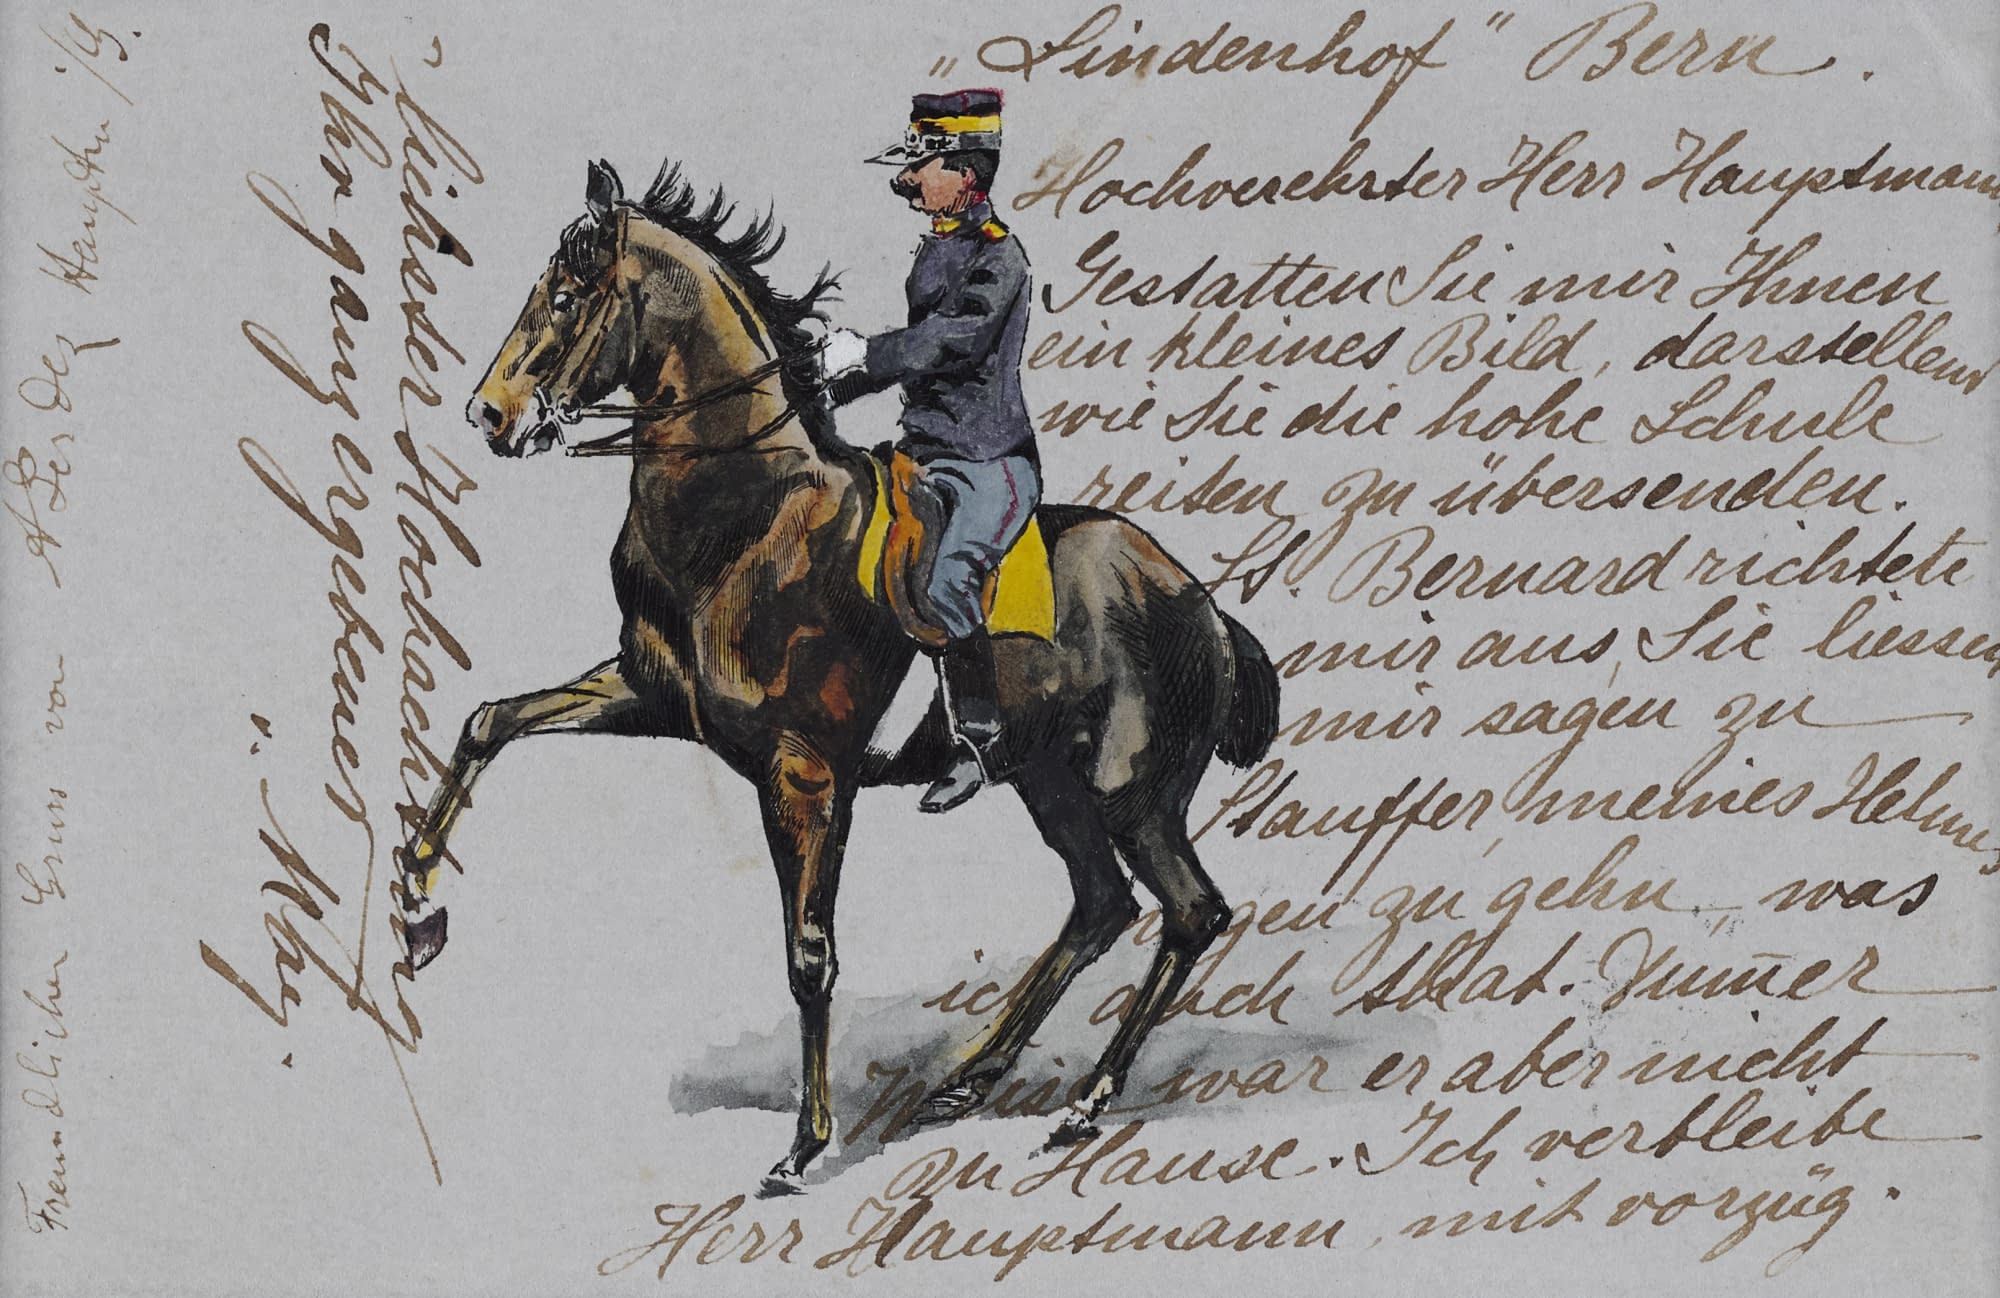 „Lindenhof" Bern.
Hochverehrter Herr Hauptmann
Gestatten Sie mir Ihnen
ein kleines Bild, darstellend
wie Sie die hohe Schule
reiten zu übersenden.
Lt. Bernard richtete
mir aus, Sie liessen
mir sagen zu
Stauffer, meines Helmes
wegen zu gehn, was
ich auch that. Dummer
Weise war er aber nicht
zu Hause. Ich verbleibe
Herr Hauptmann, mit vorzüg.
lichster Hochachtung
Ihr ganz ergebener
Freundlichen Gruss von